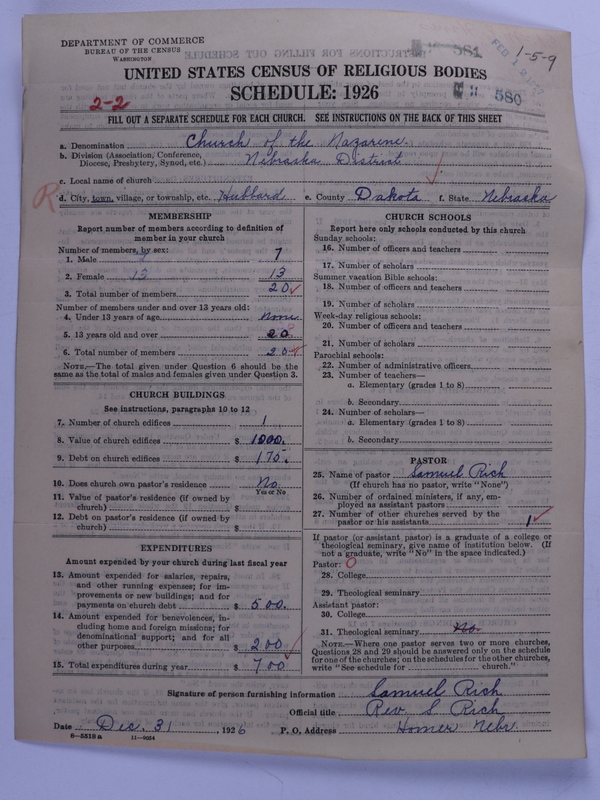 DEPARTMENT OF COMMERCE
BUREAU OF THE CENSUS
WASHINGTON
581
FEB
1-5-9
UNITED STATES CENSUS OF RELIGIOUS BODIES
2-2
SCHEDULE: 1926
580
FILL OUT A SEPARATE SCHEDULE FOR EACH CHURCH. SEE INSTRUCTIONS ON THE BACK OF THIS SHEET
a. Denomination Church of the Nazarene
b. Division (Association, Conference, Diocese, Presbytery, Synod, etc.) Nebraska District
c. Local name of church
R
d. City, town, village, or township, etc. Hubbard e. County Dakota f. State Nebraska
MEMBERSHIP
Report number of members according to definition of
member in your church
Number of members, by sex:
1. Male 7
2. Female 13 13
3. Total number of members 20
Number of members under and over 13 years old:
4. Under 13 years of age None
5. 13 years old and over 20
6. Total number of members 20
NOTE.—The total given under Question 6 should be
same as the total of males and females given under Question 3.
CHURCH BUILDINGS
See instructions, paragraphs 10 to 12
7. Number of church edifices 1
8. Value of church edifices $ 1000.
9. Debt on church edifices $ 175.
10. Does church own pastor's residence No
Yes or No
11. Value of pastor's residence (if owned by
church) $
12. Debt on pastor's residence (if owned by
church) $
EXPENDITURES
Amount expended by your church during last fiscal year
13. Amount expended for salaries, repairs,
and other running expenses; for im-
provements or new buildings; and for
payments on church debt $ 500.
14. Amount expended for benevolences, in-
cluding home and foreign missions; for
denominational support; and for all
other purposes $ 200
15. Total expenditures during year $ 700
CHURCH SCHOOLS
Report here only schools conducted by this church
Sunday schools:
16. Number of officers and teachers
17. Number of scholars
Summer vacation Bible schools:
18. Number of officers and teachers
19. Number of scholars
Week-day religious schools:
20. Number of officers and teachers
21. Number of scholars
Parochial schools:
22. Number of administrative officers
23. Number of teachers—
a. Elementary (grades 1 to 8)
b. Secondary
24. Number of scholars—
a. Elementary (grades 1 to 8)
b. Secondary
PASTOR
25. Name of pastor Samuel Rich
(If church has no pastor, write "None")
26. Number of ordained ministers, if any, em-
ployed as assistant pastors
27. Number of other churches served by the
pastor or his assistants 1
If pastor (or assistant pastor) is a graduate of a college or
theological seminary, give name of institution below. (If
not a graduate, write "No" in the space indicated.)
Pastor: 0
28. College
29. Theological seminary
Assistant pastor:
30. College
31. Theological seminary No
NOTE.—Where one pastor serves two or more churches,
Questions 28 and 29 should be answered only on the schedule
for one of the churches; on the schedules for the other churches,
write "See schedule for church."
Signature of person furnishing information Samuel Rich
Official title Rev S Rich
Date Dec. 31, 1926 P. O. Address Homer Nebr
8-5518a 11-9054